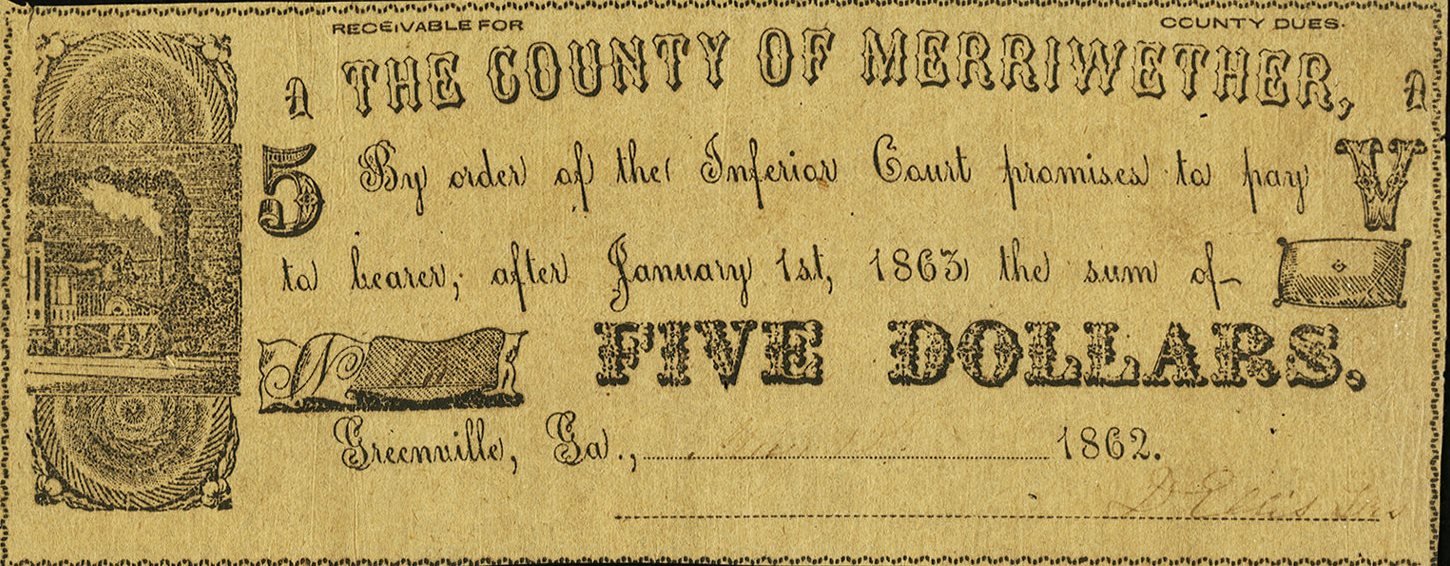 RECEIVABLE FOR COUNTY DUES.
A THE COUNTY OF MERRIWETHER, A
5 By order of the Inferior Court promises to pay V
to bearer, after January 1st, 1863 the sum of
No
FIVE DOLLARS.
Greenville, Ga., 1862.
D Ellis